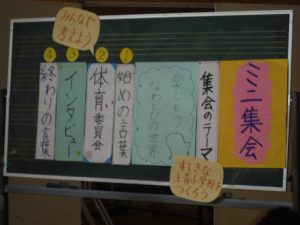 ミニ集会
集会のテーマ
楽しもう
なわとびの世界
①始めの言葉
②体育委員会
③インタビュー
④終わりの言葉
みんなで
考えよう
すてきな
上青小学校を
つくろう